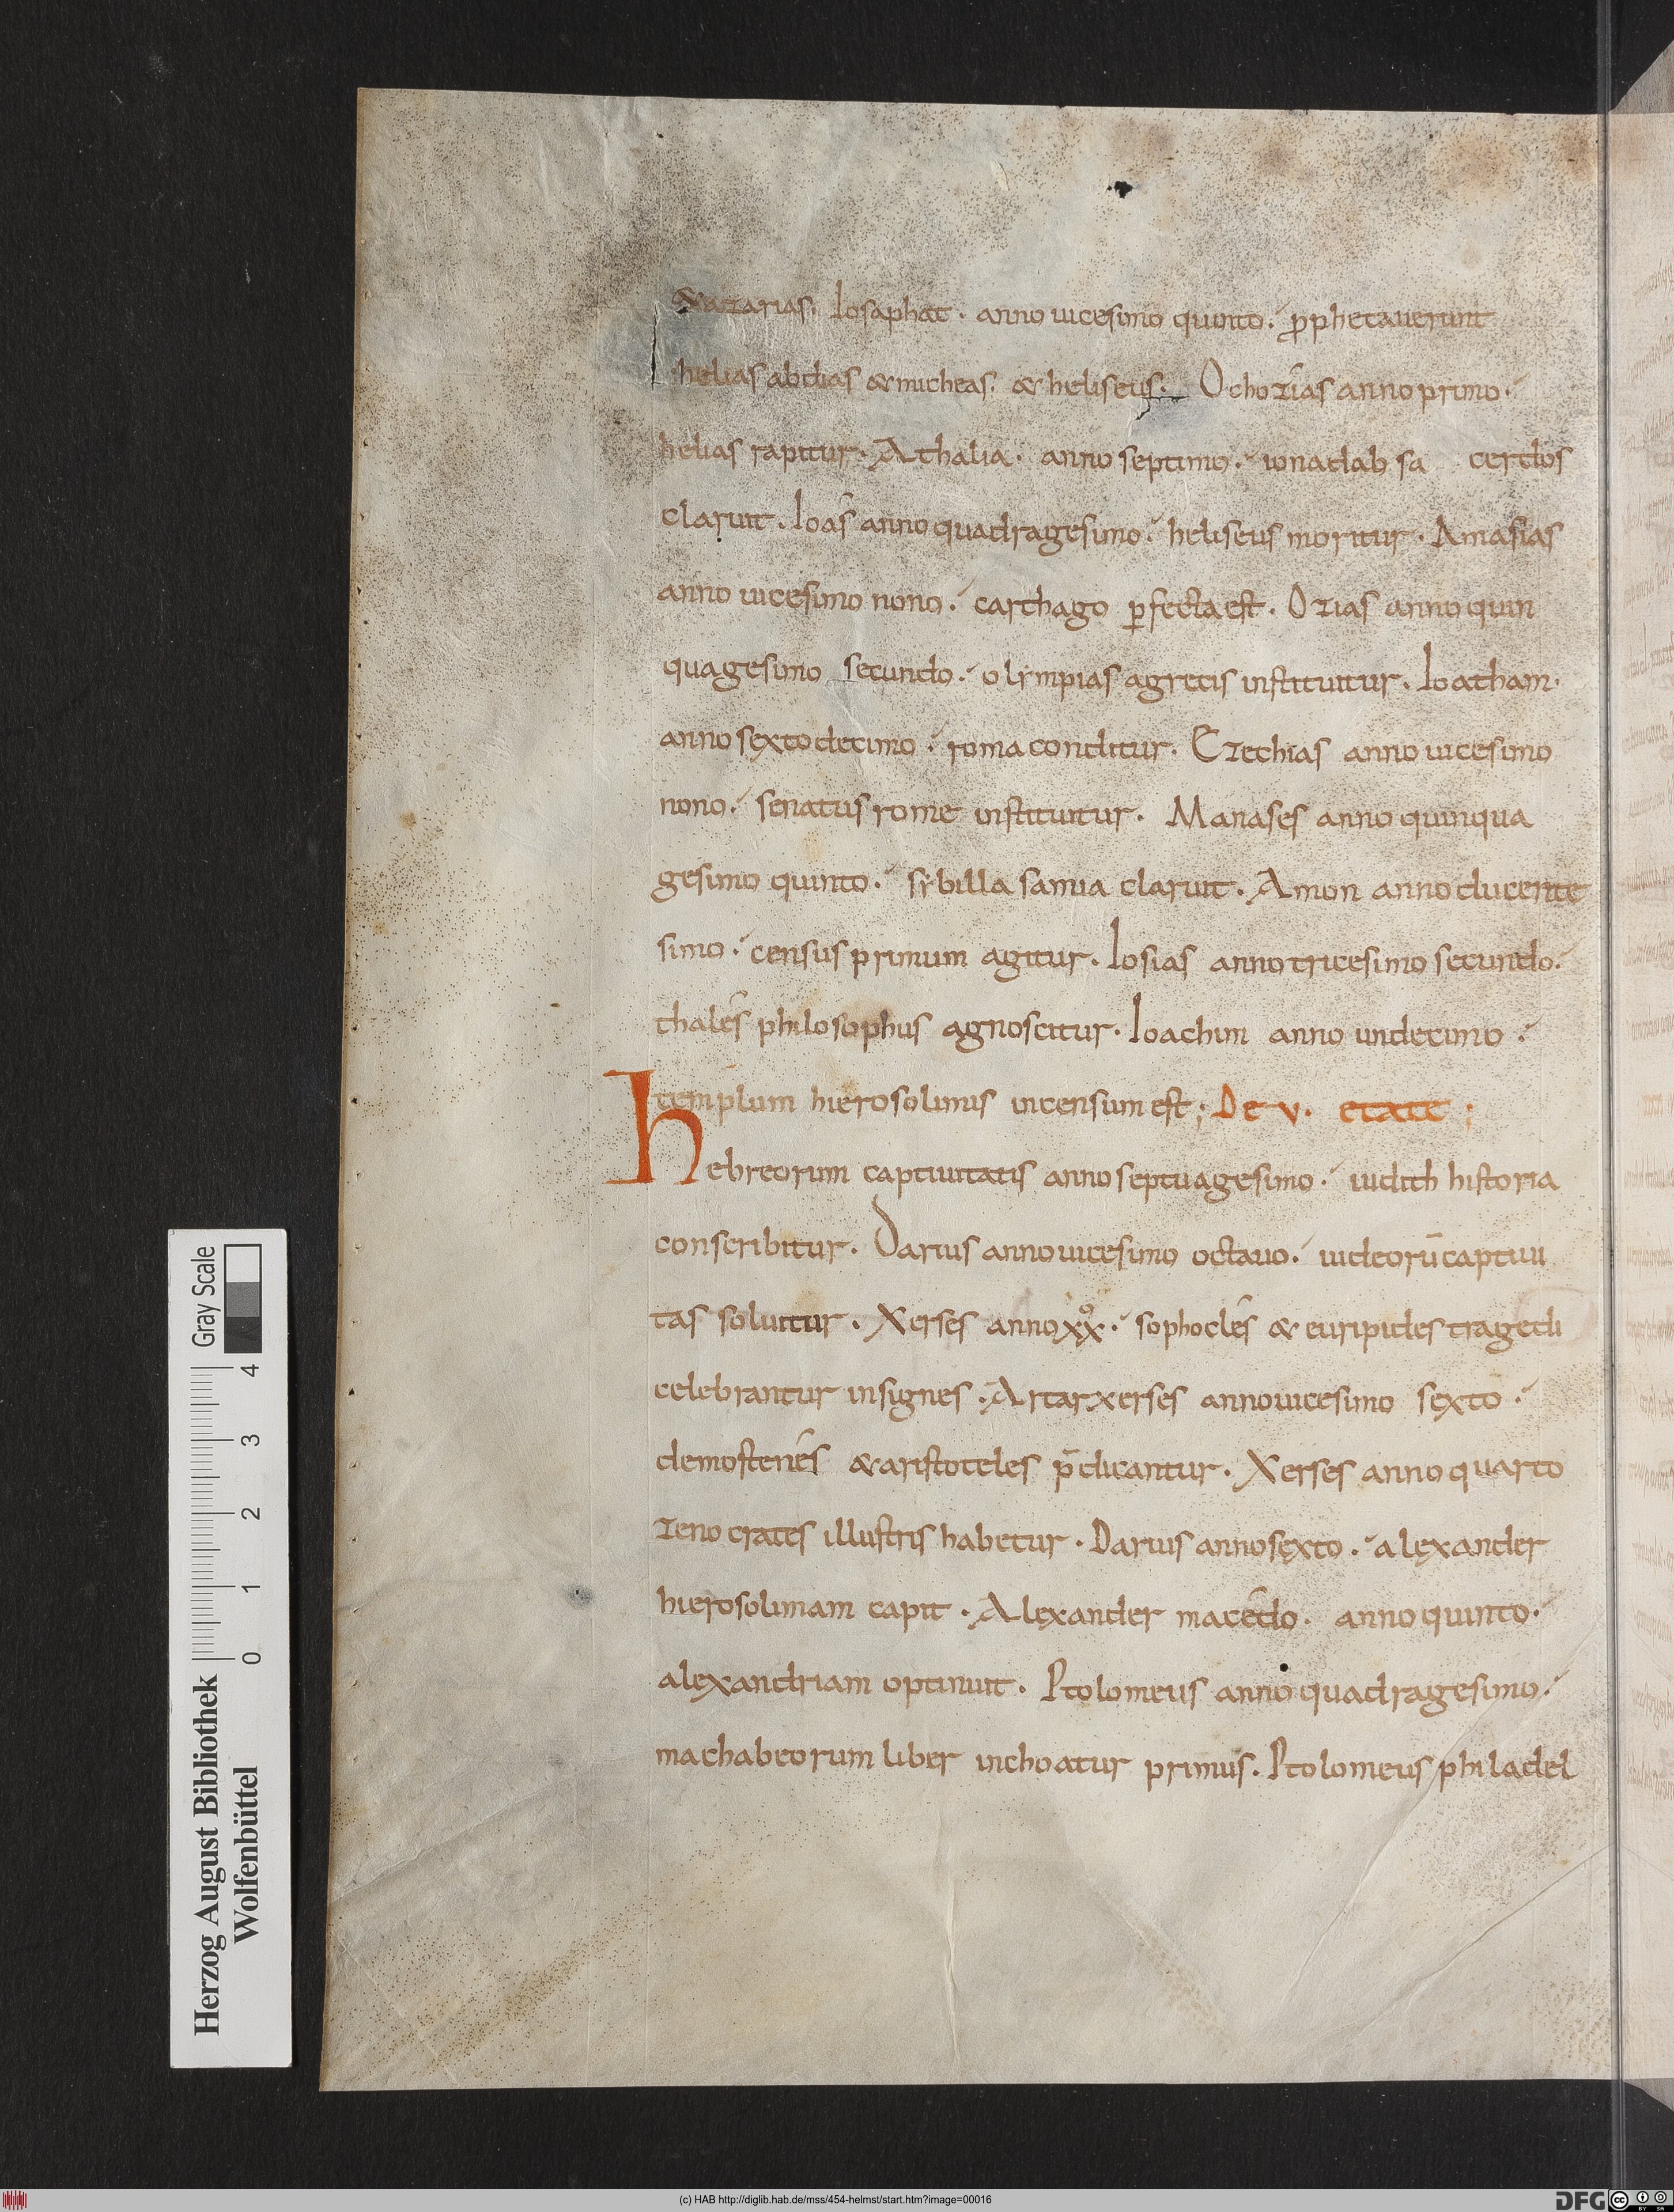 & azarias. Iosaphat · anno uicesimo quinto · ꝓphetauerunt
helias abdias & micheas · & heliseus · Ochozias anno primo ·
helias rapitur · Athalia · anno septimo · ionadab sa cerdos
claruit · Ioas anno quadragesimo · heliseus moritur · Amasias
anno uicesimo nono · carthago ꝑfecta est · Ozias anno quin
quagesimo secundo · olympias agrecis instituitur · Ioatham ·
anno sexto decimo · roma conditur · Ezechias anno uicesimo
nono · senatus rome instituitur · Manases anno quinqua
gesimo quinto · sẏbilla samia claruit · Amon anno ducente
simo · census primum agitur · Iosias anno tricesimo secundo ·
thales philosophus agnoscitur · Ioachim anno undecimo ·
templum hierosolimis incensum est ; De v · etate ;
Hebreorum captiuitatis anno septuagesimo · iudith historia
conscribitur · Darius anno uicesimo octauo · iudeorū captiui
tas soluitur · Xerses anno xxº · sophocles & euripides tragedi
celebrantur insignes · Artarxerses anno uicesimo sexto ·
demostenes & aristoteles p̄dicantur · Xerses anno quarto
zenocrates illustris habetur · Darius anno sexto · alexander
hierosolimam capit · Alexander macedo · anno quinto ·
alexandriam optinuit · Ptolomeus anno quadragesimo ·
machabeorum liber inchoatur primus · Ptolomeus philadel
Herzog August Bibliothek
Wolfenbüttel
0 1 2 3 4
Gray Scale
(c) HAB http://diglib.hab.de/mss/454-helmst/start.htm?image=00016
DFG